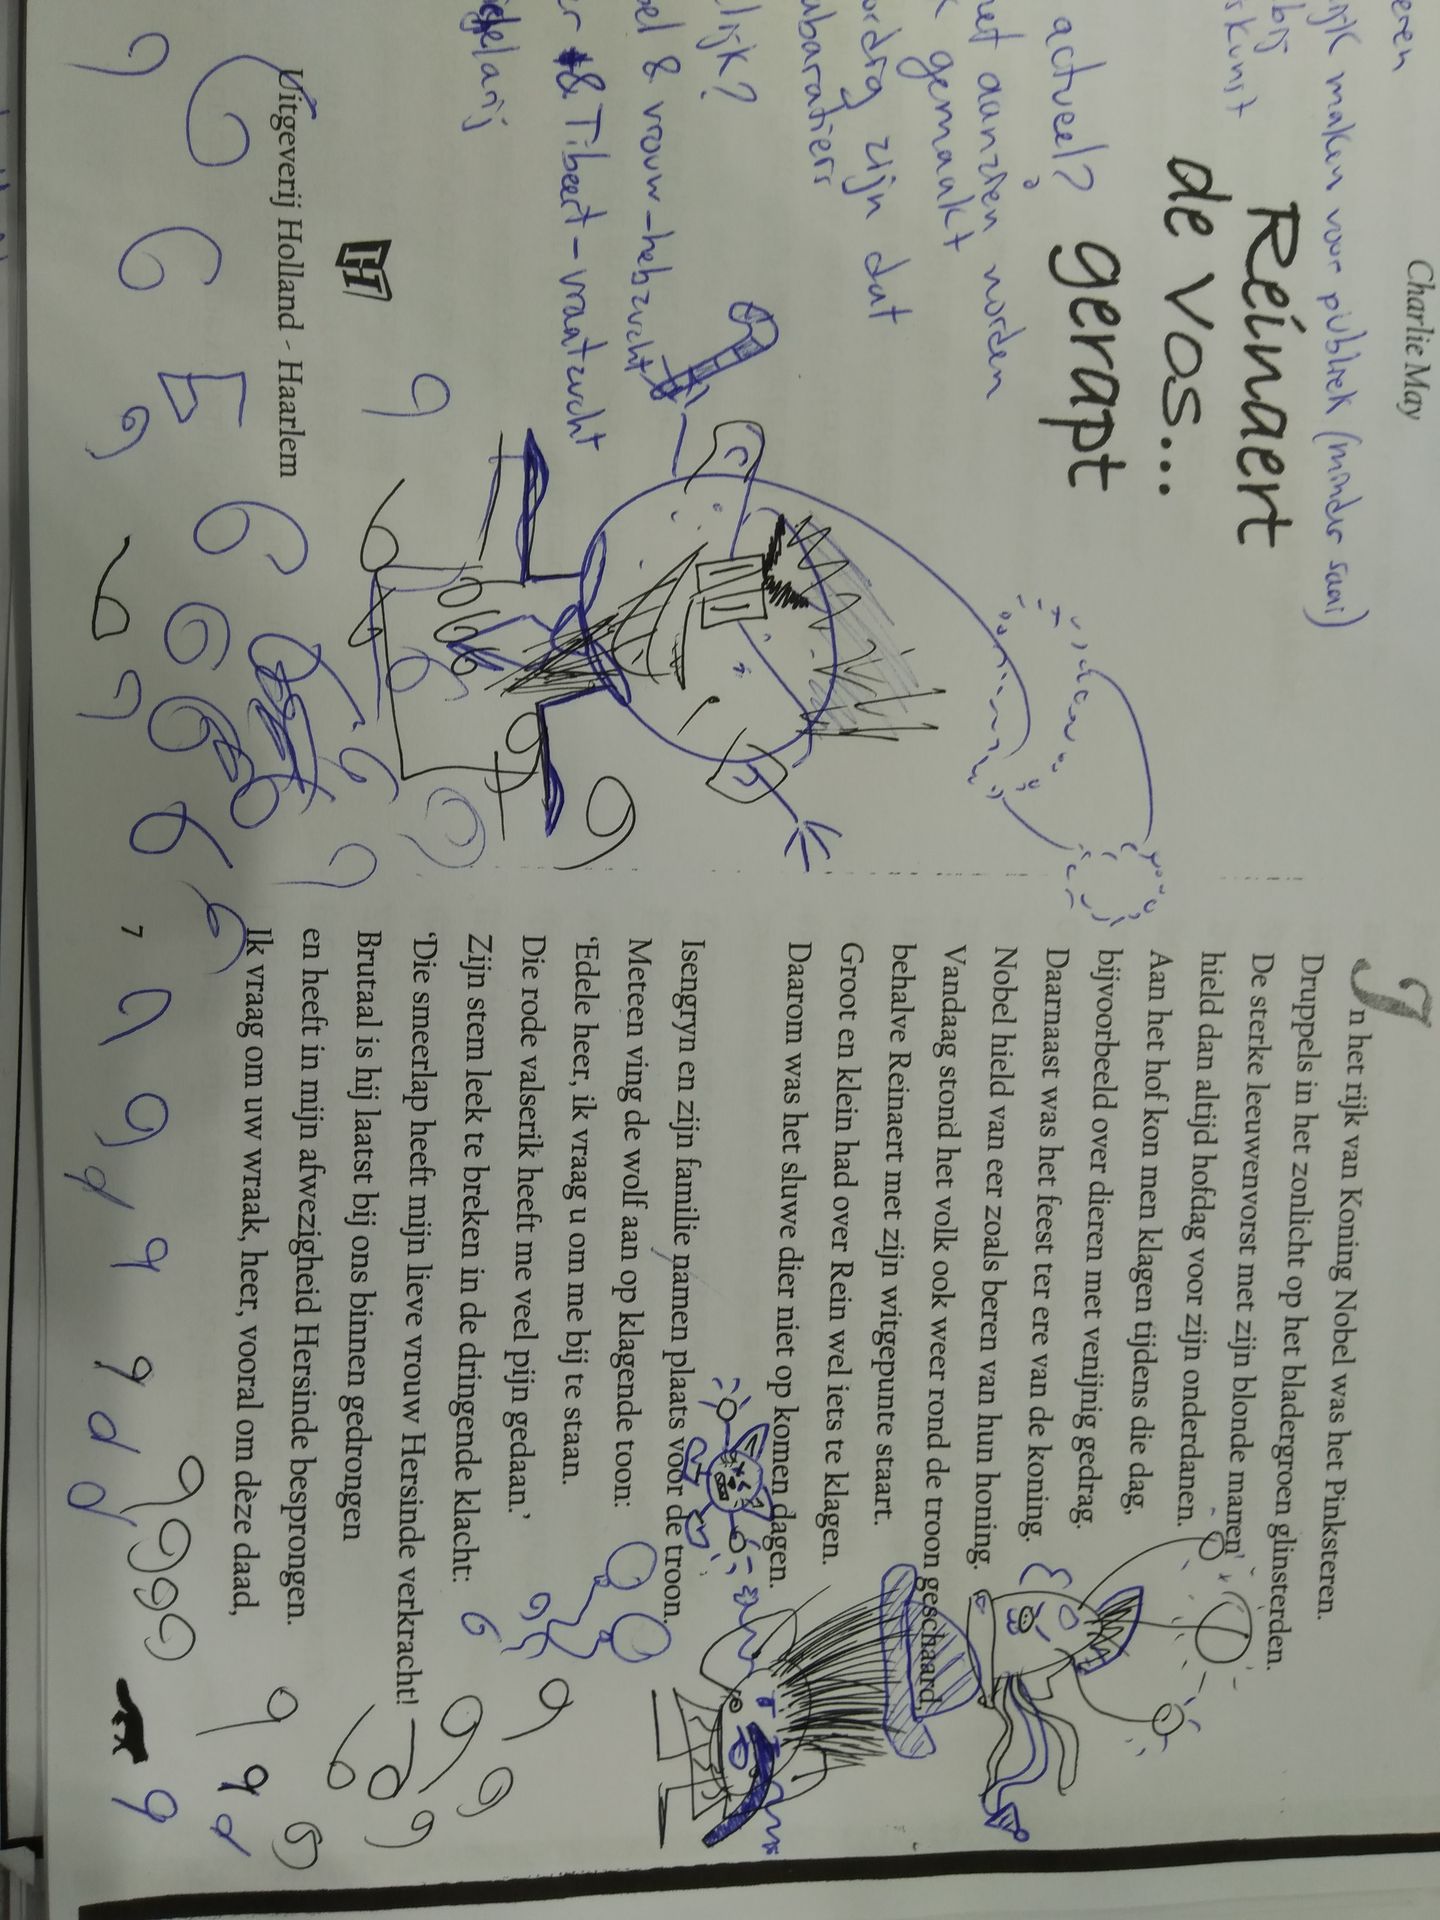 Charlie May
Reinaert
de vos...
gerapt
Uitgeverij Holland - Haarlem
H
eren
maken voor publiek (minder saai)
bij
kunst
actueel?
het aanzien worden
gemaakt
zijn dat
baratiers
lijk?
& vrouw - hebzucht
& Tibeert - vraatzucht
In het rijk van Koning Nobel was het Pinksteren.
Druppels in het zonlicht op het bladergroen glinsterden.
De sterke leeuwenvorst met zijn blonde manen
hield dan altijd hofdag voor zijn onderdanen.
Aan het hof kon men klagen tijdens die dag,
bijvoorbeeld over dieren met venijnig gedrag.
Daarnaast was het feest ter ere van de koning.
Nobel hield van eer zoals beren van hun honing.
Vandaag stond het volk ook weer rond de troon geschaard,
behalve Reinaert met zijn witgepunte staart.
Groot en klein had over Rein wel iets te klagen.
Daarom was het sluwe dier niet op komen dagen.
Isengryn en zijn familie namen plaats voor de troon.
Meteen ving de wolf aan op klagende toon:
‘Edele heer, ik vraag u om me bij te staan.
Die rode valserik heeft me veel pijn gedaan.’
Zijn stem leek te breken in de dringende klacht:
‘Die smeerlap heeft mijn lieve vrouw Hersinde verkracht!
Brutaal is hij laatst bij ons binnen gedrongen
en heeft in mijn afwezigheid Hersinde besprongen.
Ik vraag om uw wraak, heer, vooral om dèze daad,